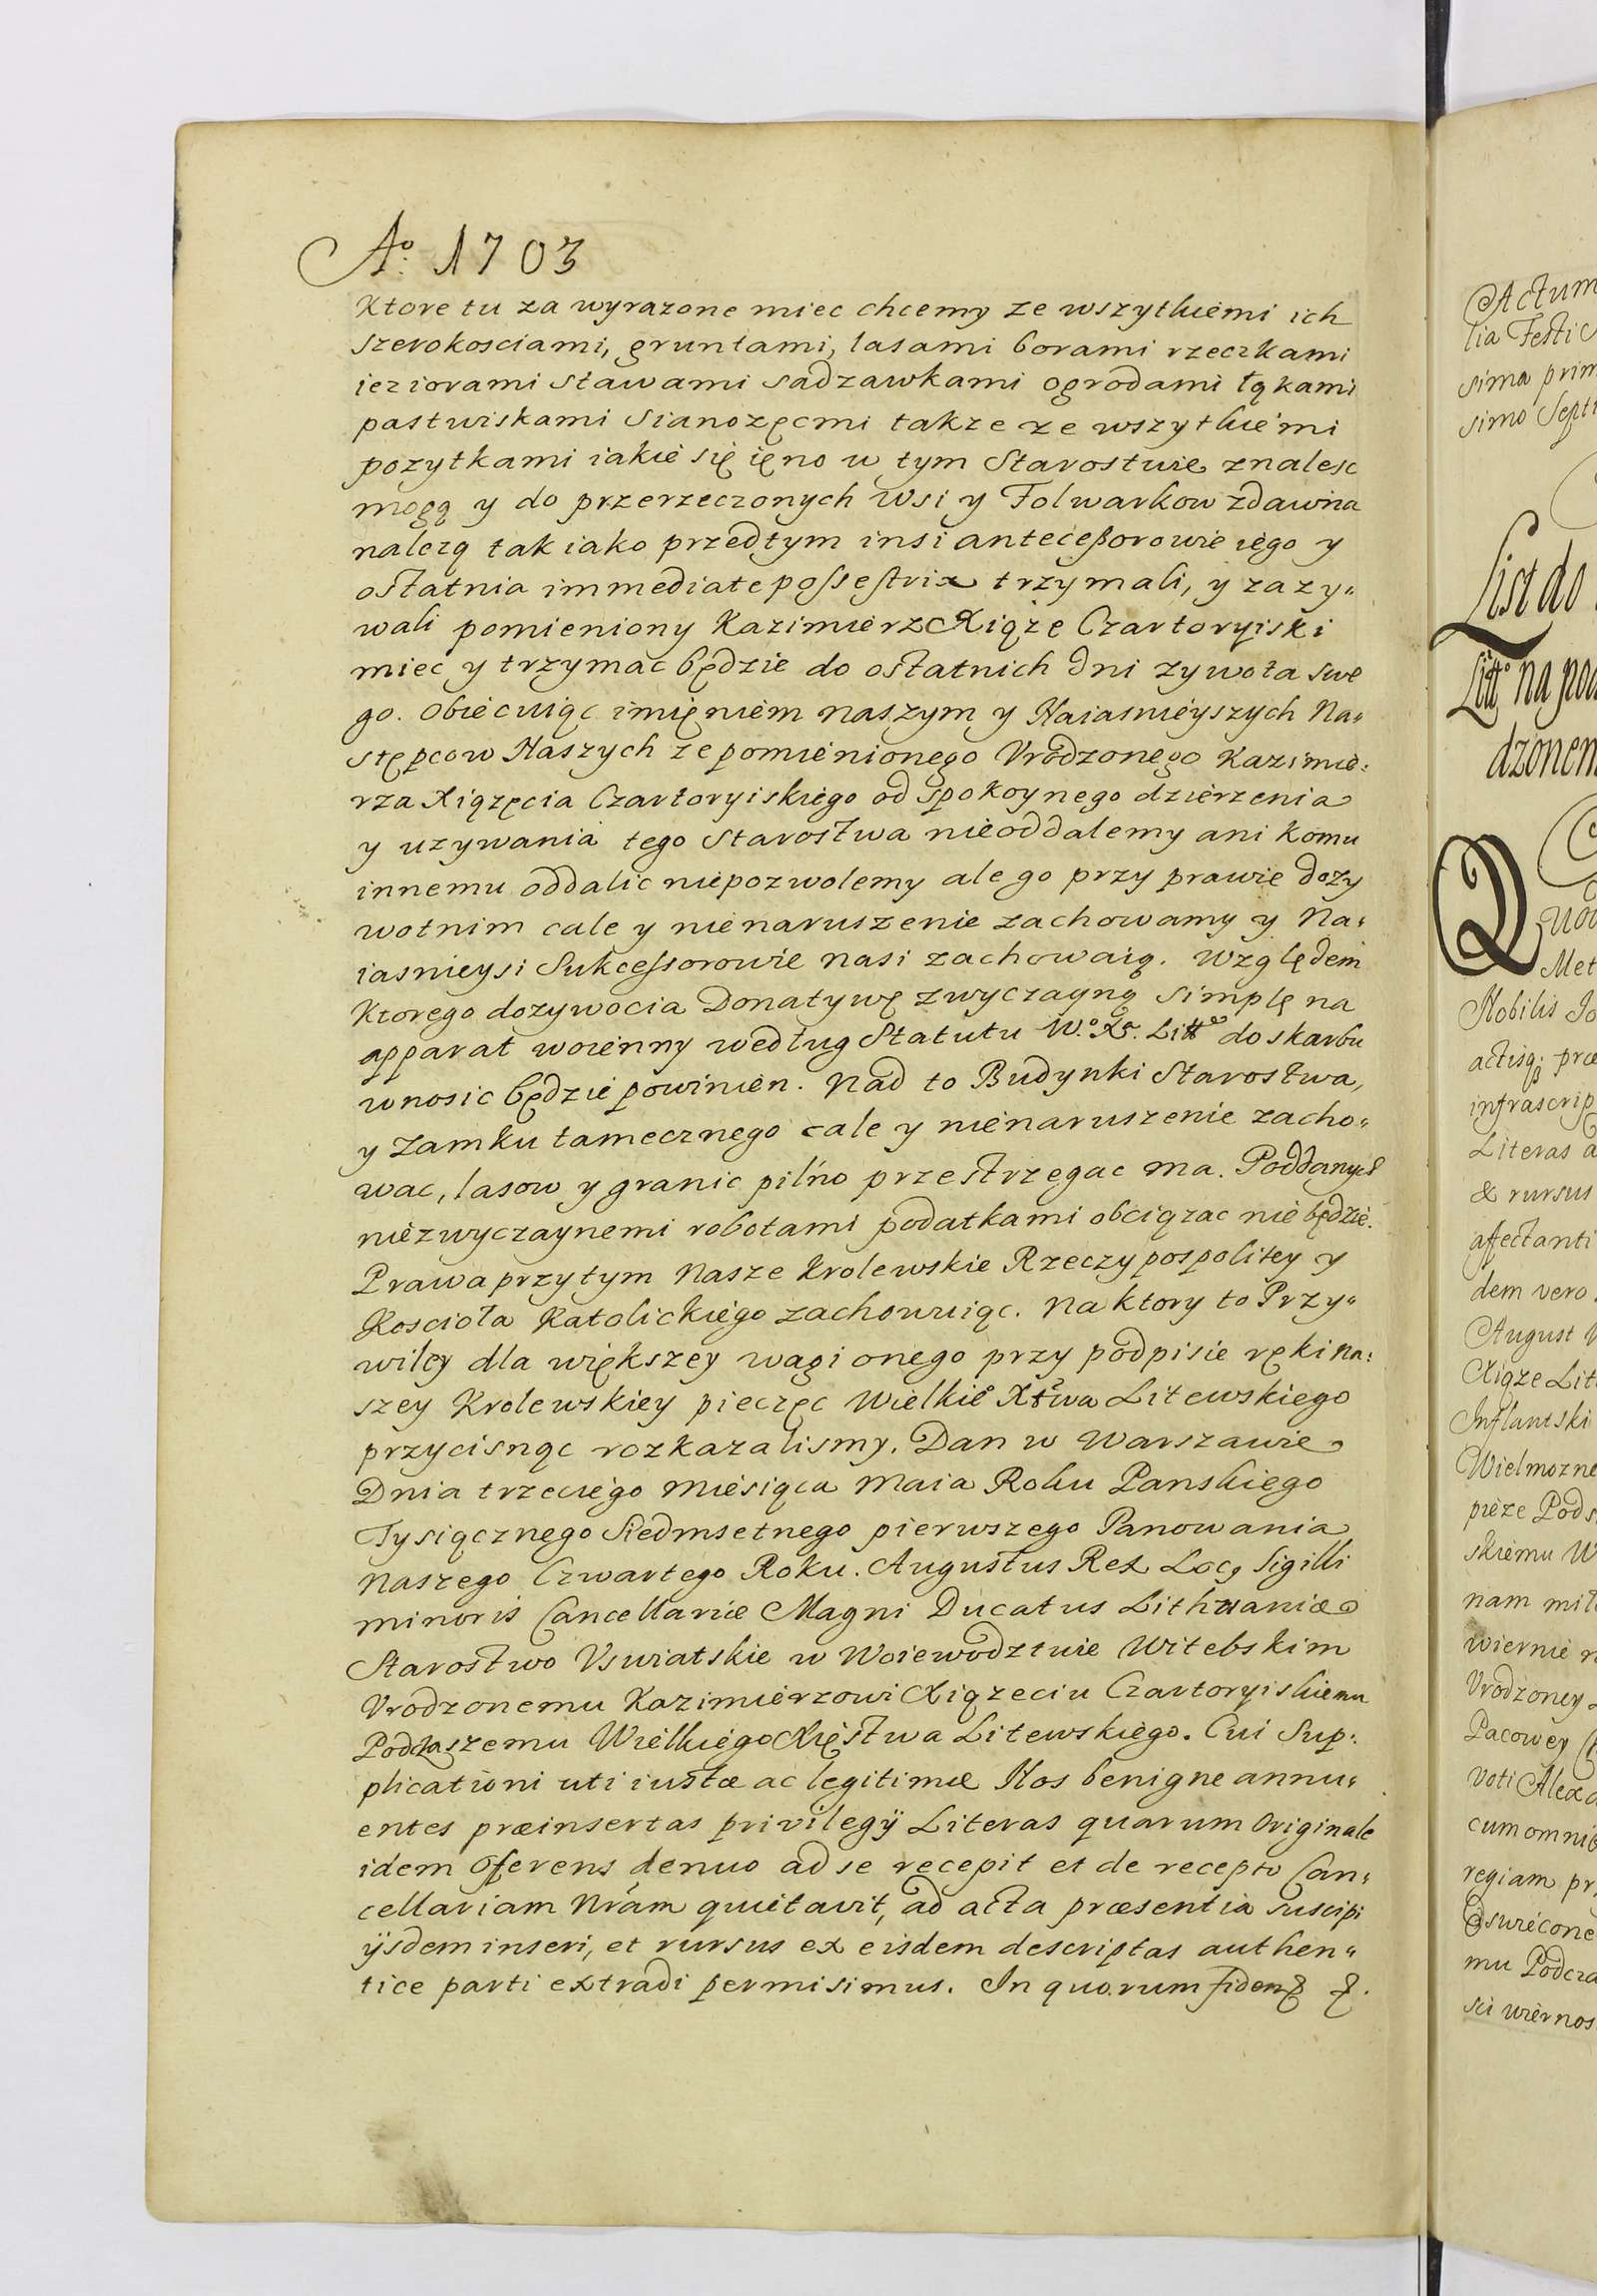 Aº 1703
Ktore tu za wyrazone miec chcemy ze wszytkiemi ich
szerokosciami, gruntami, lasami borami rzeczkami
ieziorami stawami sadzawkami ogrodami łąkami
pastwiskami sianozęcmi takze ze wszytkiemi
pozytkami iakie się ięno w tym Starostwie znalesc
mogą y do przerzeczonych wsi y Folwarkow zdawna
nalezą tak iako przedtym insi anteceßorowie iego y
ostatnia immediate possestrix trzymali, y zazy-
wali pomieniony Kazimierz Xiąze Czartoryiski
miec y trzymac będzie do ostatnich dni zywota swe
go. Obiecuiąc imięniem naszym y Naiasnieyszych Na-
stępcow Naszych ze pomienionego Vrodzonego Kazimie:
rza Xiązęcia Czartoryiskiego od spokoynego dzierzenia
y uzywania tego Starostwa nieoddalemy ani komu
innemu oddalic niepozwolemy ale go przy prawie dozy
wotnim cale y nienaruszenie zachowamy y Na-
iasnieysi Sukcessorowie nasi zachowaią. Względem
Ktorego dozywocia Donatywę zwyczayną simplę na
apparat woienny według Statutu Wº Xa. Litto do skarbu
wnosic będzie powinien. Nad to Budynki Starostwa,
y Zamku tamecznego cale y nienaruszenie zacho-
wac, lasow y granic pilno przestrzegac ma. Poddanych
niezwyczaynemi robotami podatkami obciązac nie będzie.
Prawa przytym Nasze Krolewskie Rzeczypospolitey y
Koscioła Katolickiego zachowuiąc. Na ktory to Przy-
wiley dla większey wagi onego przy podpisie ręki na:
szey Krolewskiey pieczęc Wielkiº Xtwa Litewskiego
przycisnąc rozkazalismy. Dan w Warszawie
Dnia trzeciego Miesiąca Maia Roku Panskiego
Tysiącznego Siedmsetnego pierwszego Panowania
Naszego Czwartego Roku. Augustus Rex Locg Sigilli
minoris Cancellariæ Magni Ducatus Lithuaniæ
Starostwo Vswiatskie w Woiewodztwie Witebskim
Vrodzonemu Kazimierzowi Xiązeciu Czartoryiskiemu
Podczaszemu Wielkiego Xięstwa Litewskiego. Cui Sup:
plicationi uti iustæ ac legitimæ Nos benigne annu-
entes præinsertas privilegÿ Literas quarum Originale
idem Oferens denuo ad se recepit et de recepto Can-
cellariam Nram quietavit, ad acta præsentia suscipi
ÿsdem inseri, et rursus ex eisdem descriptas authen-
tice parti extradi permisimus. In quorum fidem &.
Actum
lia Festi
sima prim
simo Sept
List do
Littº na pod
dzonem
Quo
Met
Nobilis Jo
actisq; præ
infrascrip
Literas a
& rursus
afectanti
dem vero
August
Xiąze Lit
Inflantski
Wielmozne
pieze Pods
skiemu W
nam miło
wiernie
Vrodzoney
Pacowey
voti Alexa
cum omnib
regiam pr
Osurecone
mu Podcza
sci wiernos